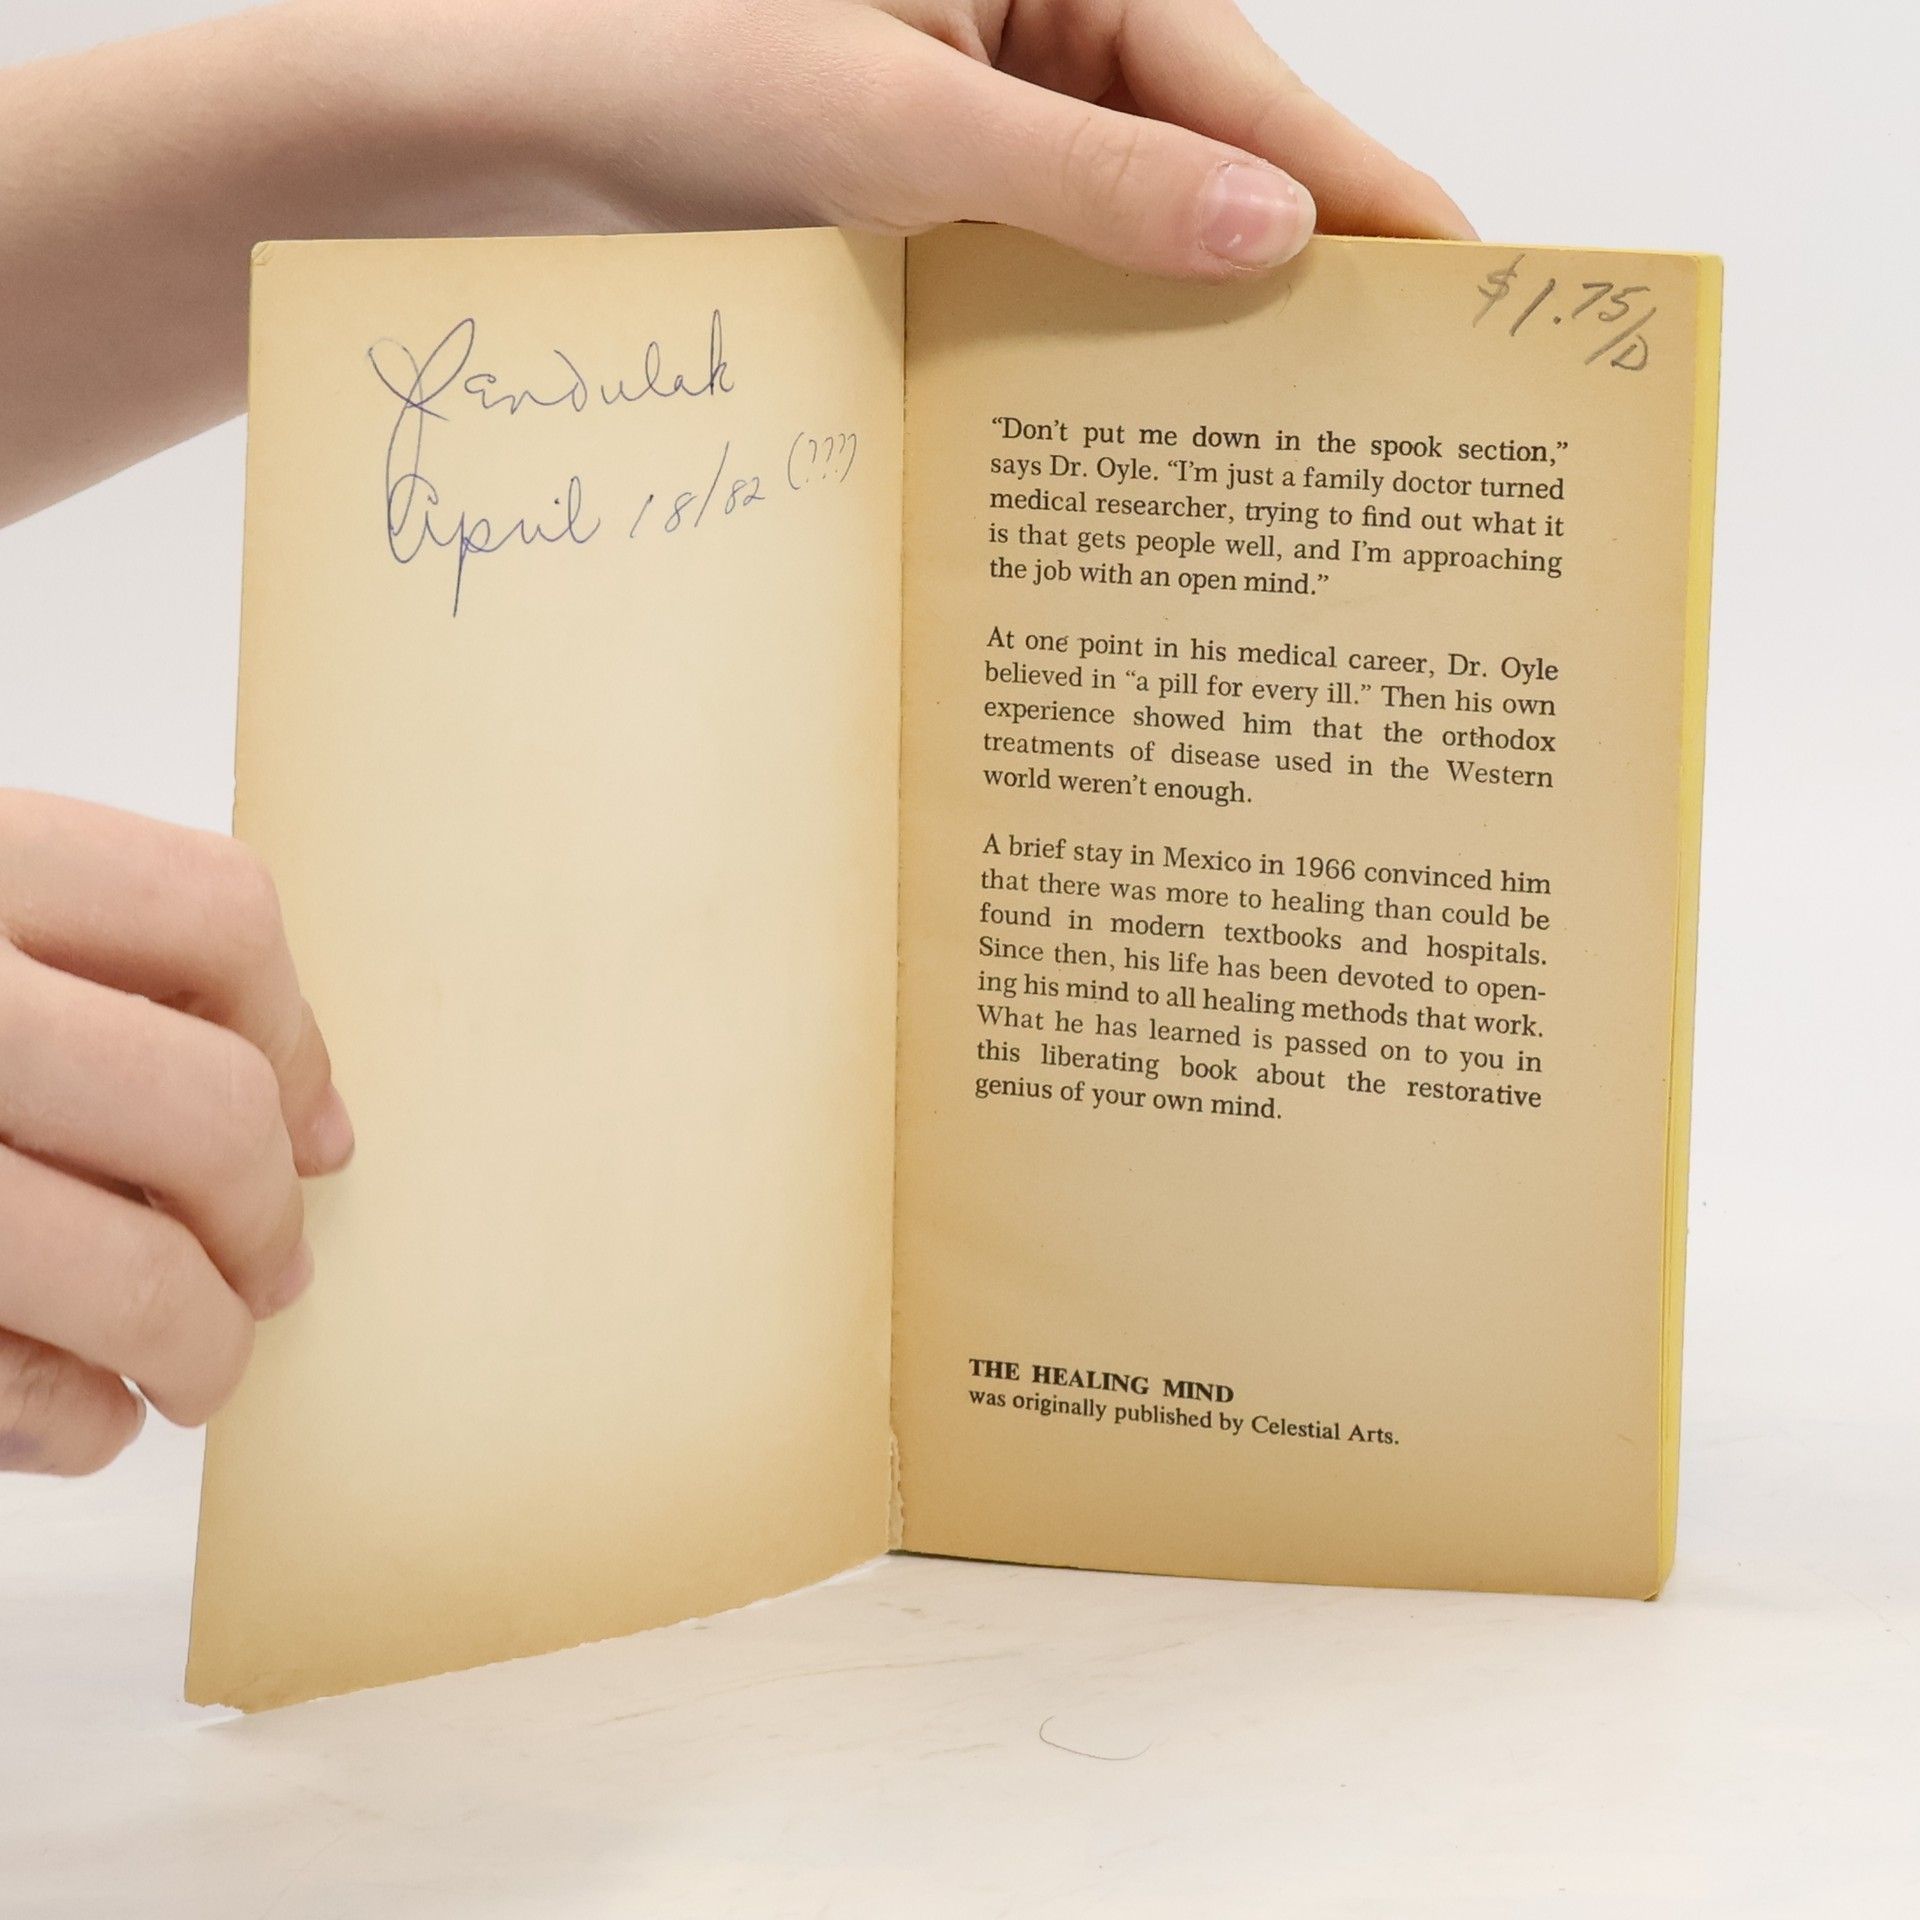 Jendulak
April 18/82 (???)
$1.75/D
“Don’t put me down in the spook section,”
says Dr. Oyle. “I’m just a family doctor turned
medical researcher, trying to find out what it
is that gets people well, and I’m approaching
the job with an open mind.”
At one point in his medical career, Dr. Oyle
believed in “a pill for every ill.” Then his own
experience showed him that the orthodox
treatments of disease used in the Western
world weren’t enough.
A brief stay in Mexico in 1966 convinced him
that there was more to healing than could be
found in modern textbooks and hospitals.
Since then, his life has been devoted to open-
ing his mind to all healing methods that work.
What he has learned is passed on to you in
this liberating book about the restorative
genius of your own mind.
THE HEALING MIND
was originally published by Celestial Arts.